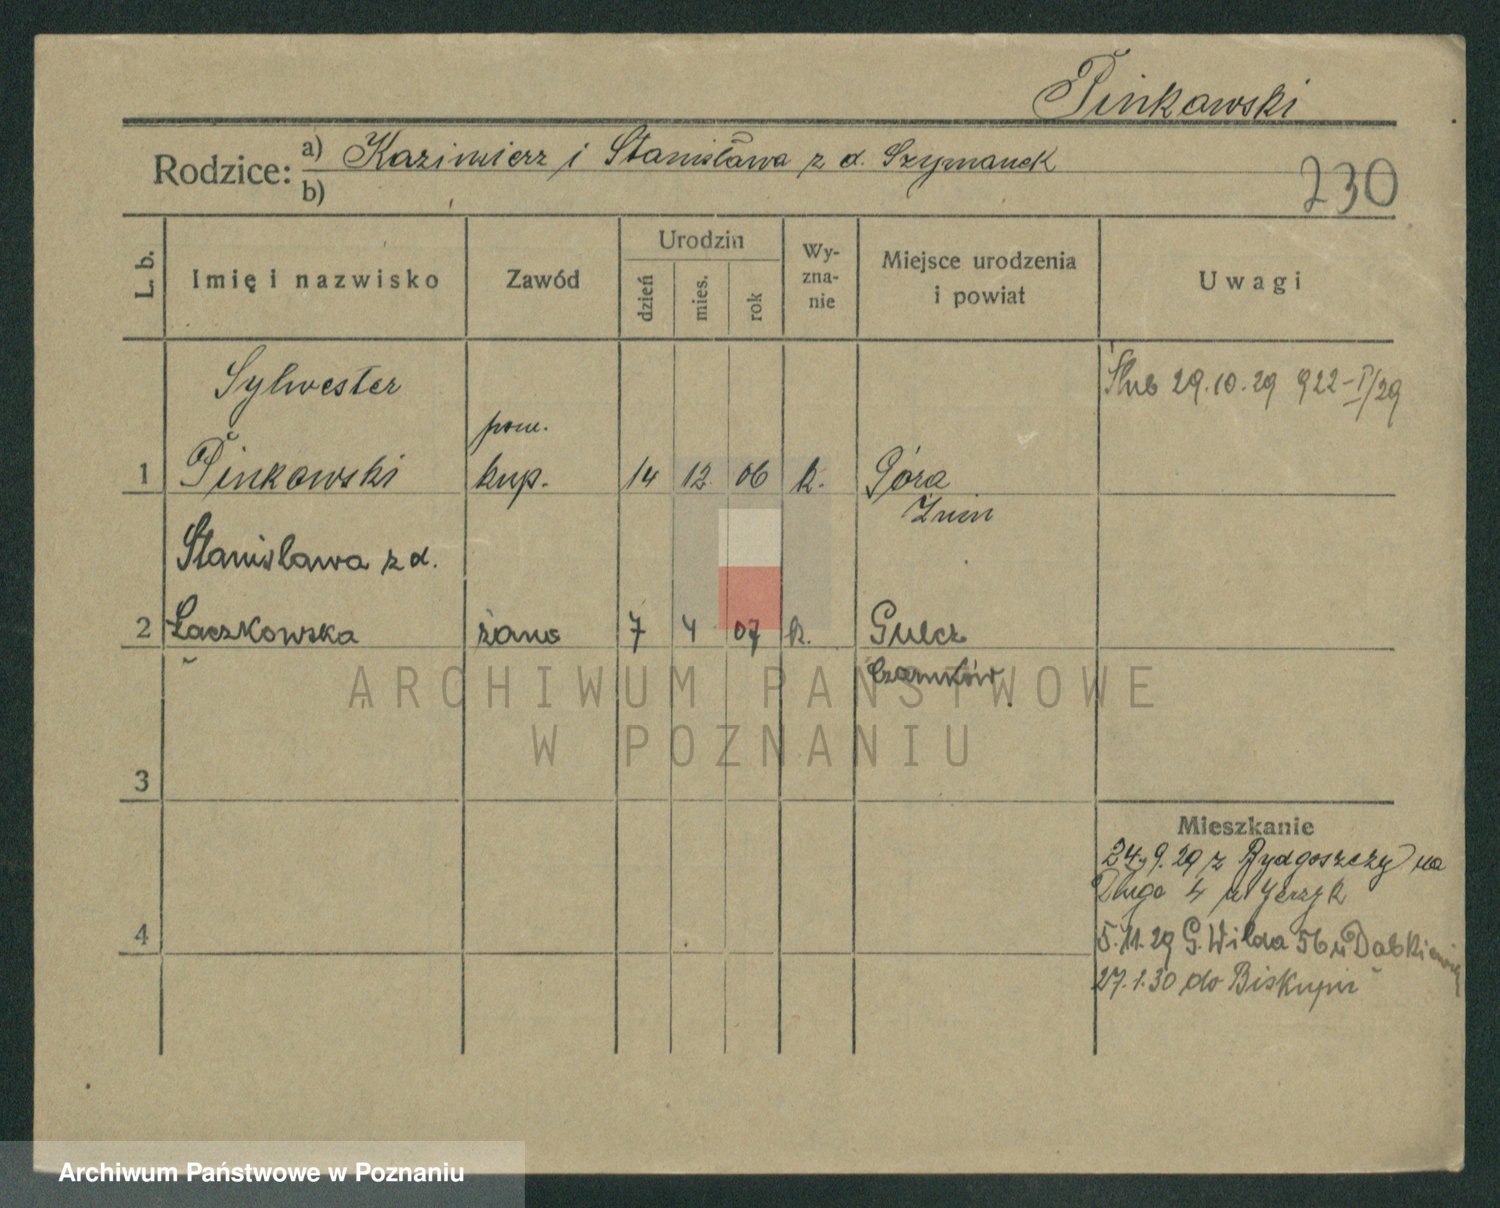 Pinkowski
Rodzice: a) Kazimierz i Stanisława z d. Szymanek
b)
230
L. b.
Imię i nazwisko
Zawód
Urodzin
dzień
mies.
rok
Wy-
zna-
nie
Miejsce urodzenia
i powiat
Uwagi
Sylwester
pom.
Ślub 29.10.29 922-I/29
1 Pinkowski kup. 14 12 06 k. Góra
Żnin
Stanisława z d.
2 Łączkowska żona 7 4 07 k. Gulcz
Czarnków
3
Mieszkanie
24.9.29 z Bydgoszczy na
Długa 4 u Jerzyk
4
5.11.29 G. Wilda 56 u Dąbkiewicz
27.1.30 do Biskupin
ARCHIWUM PAŃSTWOWE
W POZNANIU
Archiwum Państwowe w Poznaniu